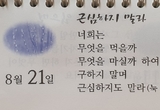 근심하지 말라
너희는
무엇을 먹을까
무엇을 마실까 하여
구하지 말며
근심하지도 말라(눅
8월 21일